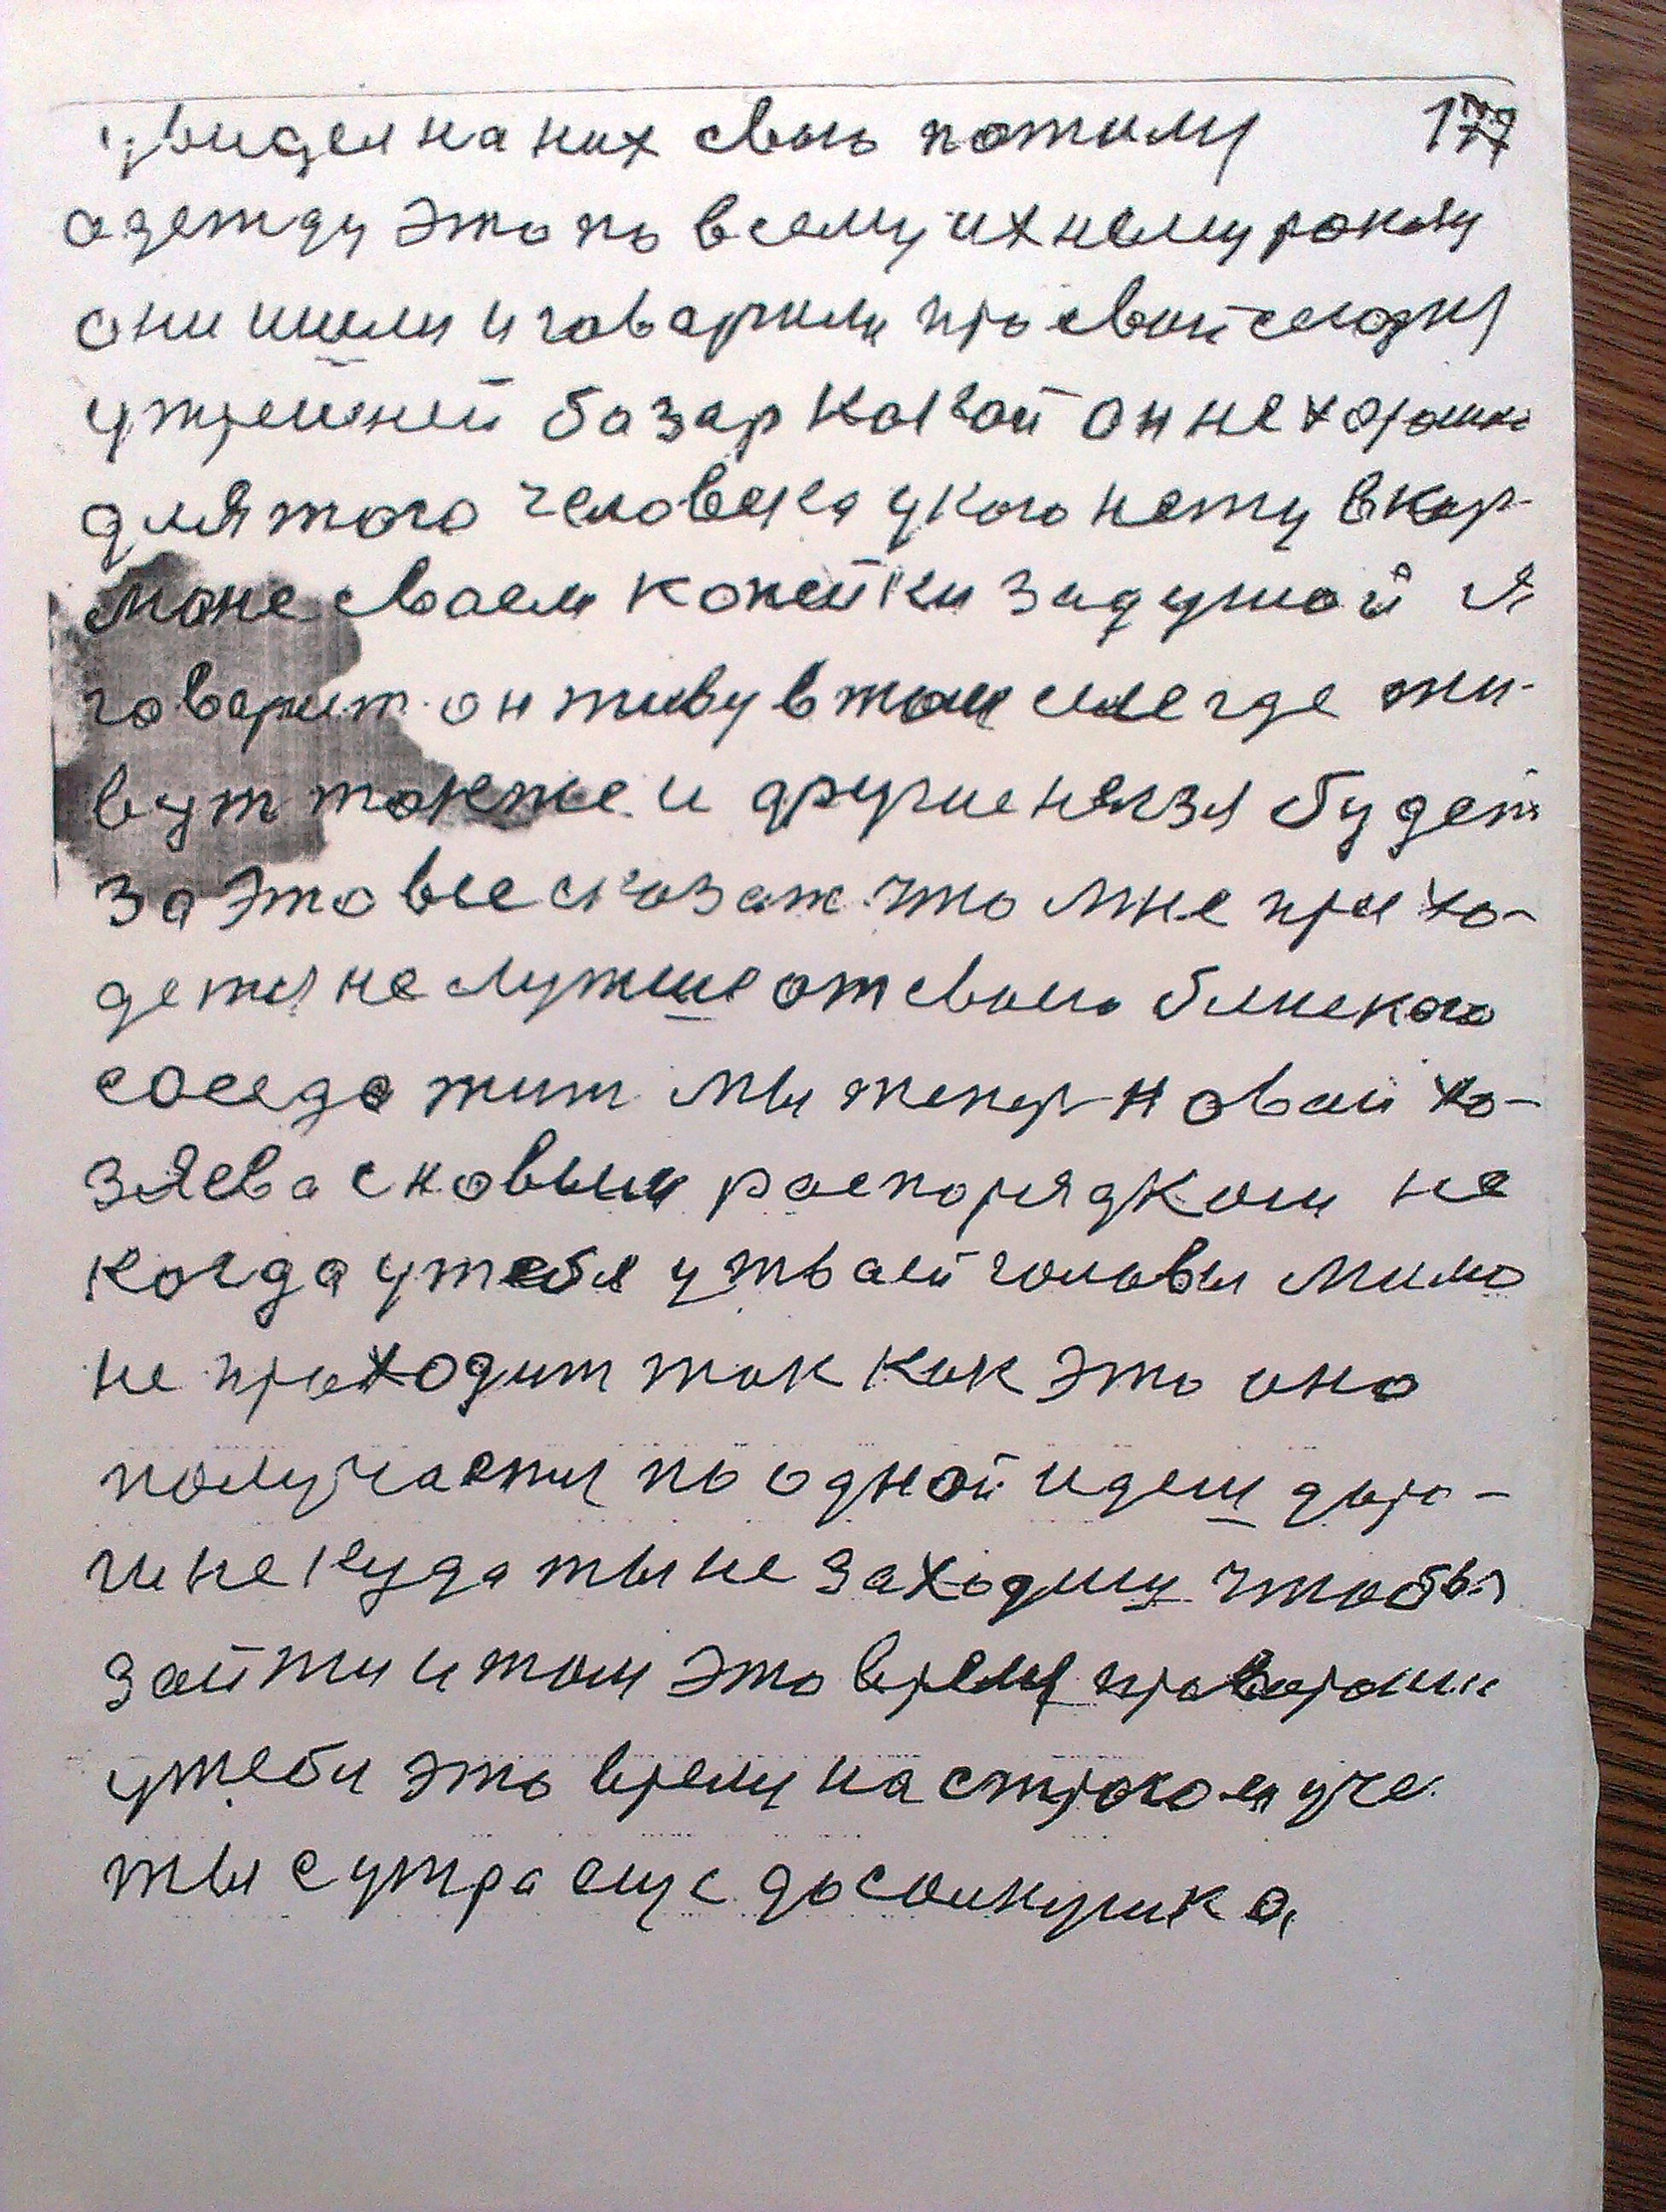 увидел на них свою потому 177
одежду это по всему ихнему
они шли и говорили про свой
утрешней базар какой он не хорошо
для того человека у кого нету в кар-
мане своем копейки за душой я
говорит он живу в том селе где жи-
вут также и другие нелзя будет
за это все сказат что мне прихо-
детця не лутше от своего блиского
соседа жит мы тепер новаи хо-
зяева с новым распорядком не
когда у тебя у тваей головы мимо
не проходит так как это оно
получаетця по одной идеш даро-
ги не куда ты не заходиш чтобы
зайти и там это время
у тебя это время на строгом уче
ты с утра еще до солнушка